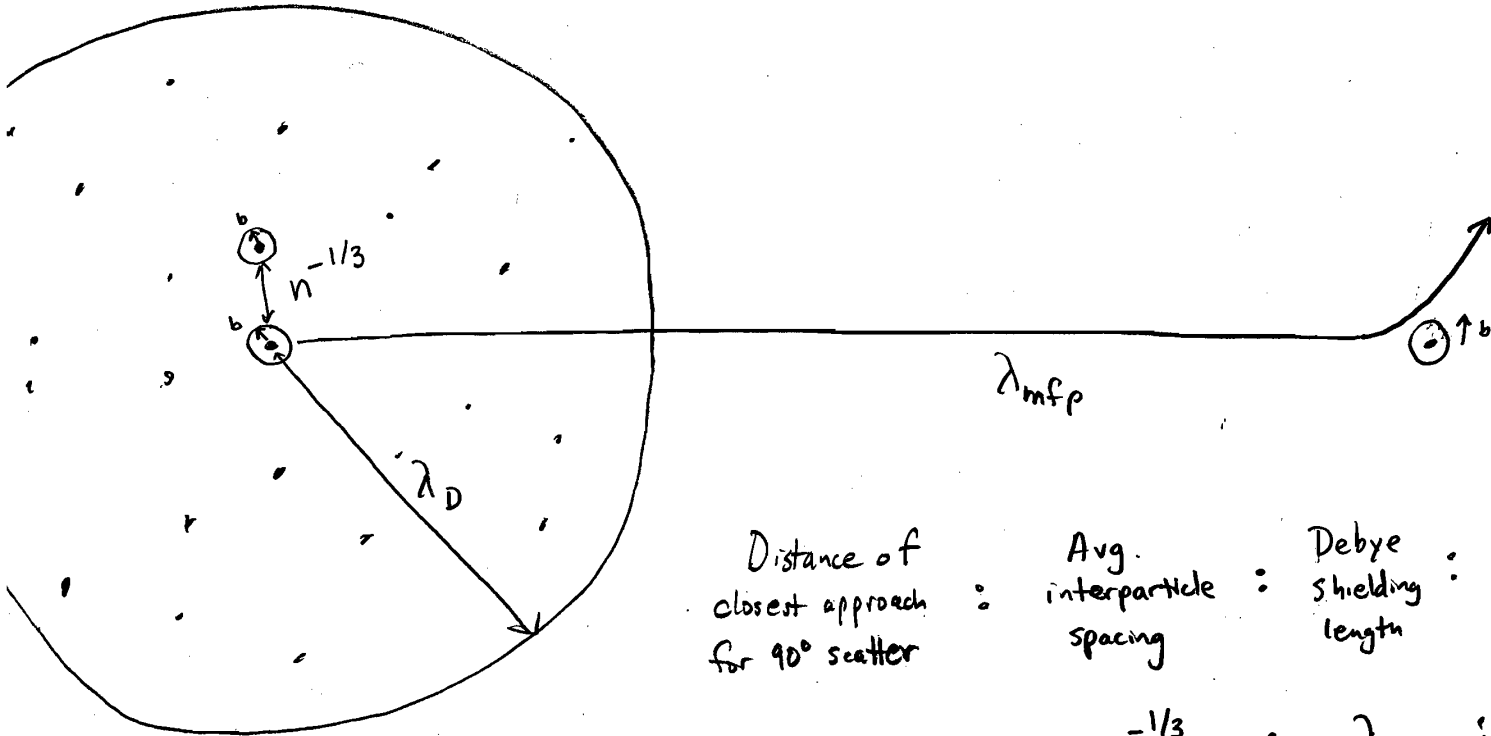 b
n^{-1/3}
b
↑ b
λ_{mfp}
λ_D
Distance of closest approach for 90° scatter : Avg. interparticle spacing : Debye shielding length :
-1/3 : λ :